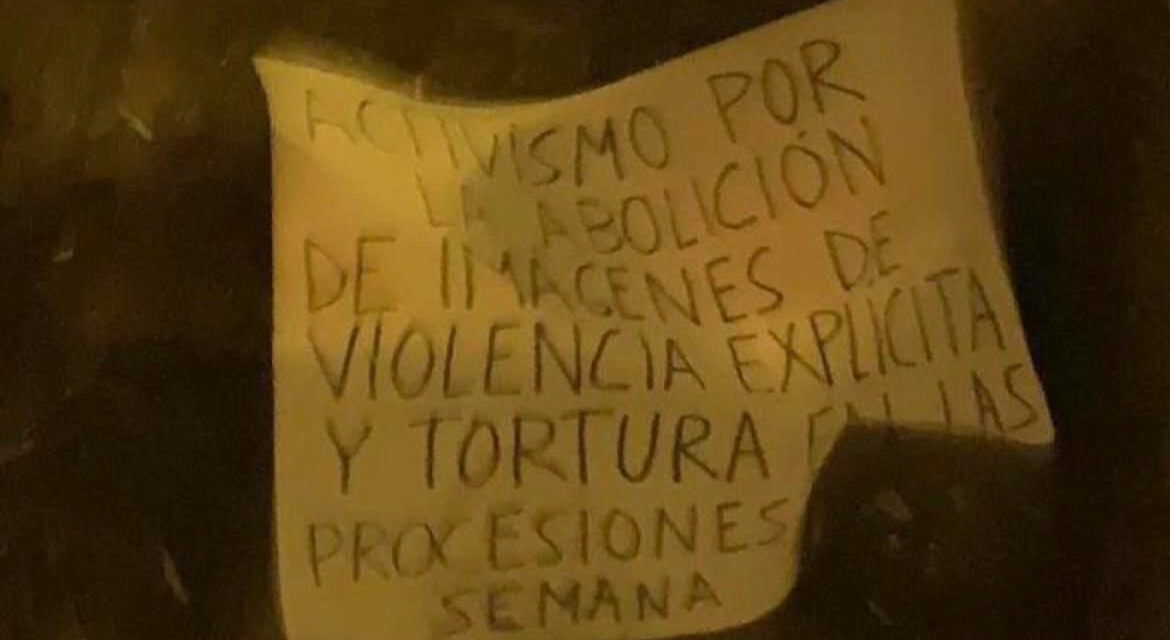 ACTIVISMO POR
LA ABOLICIÓN
DE IMAGENES DE
VIOLENCIA EXPLICITA
Y TORTURA EN LAS
PROCESIONES
SEMANA